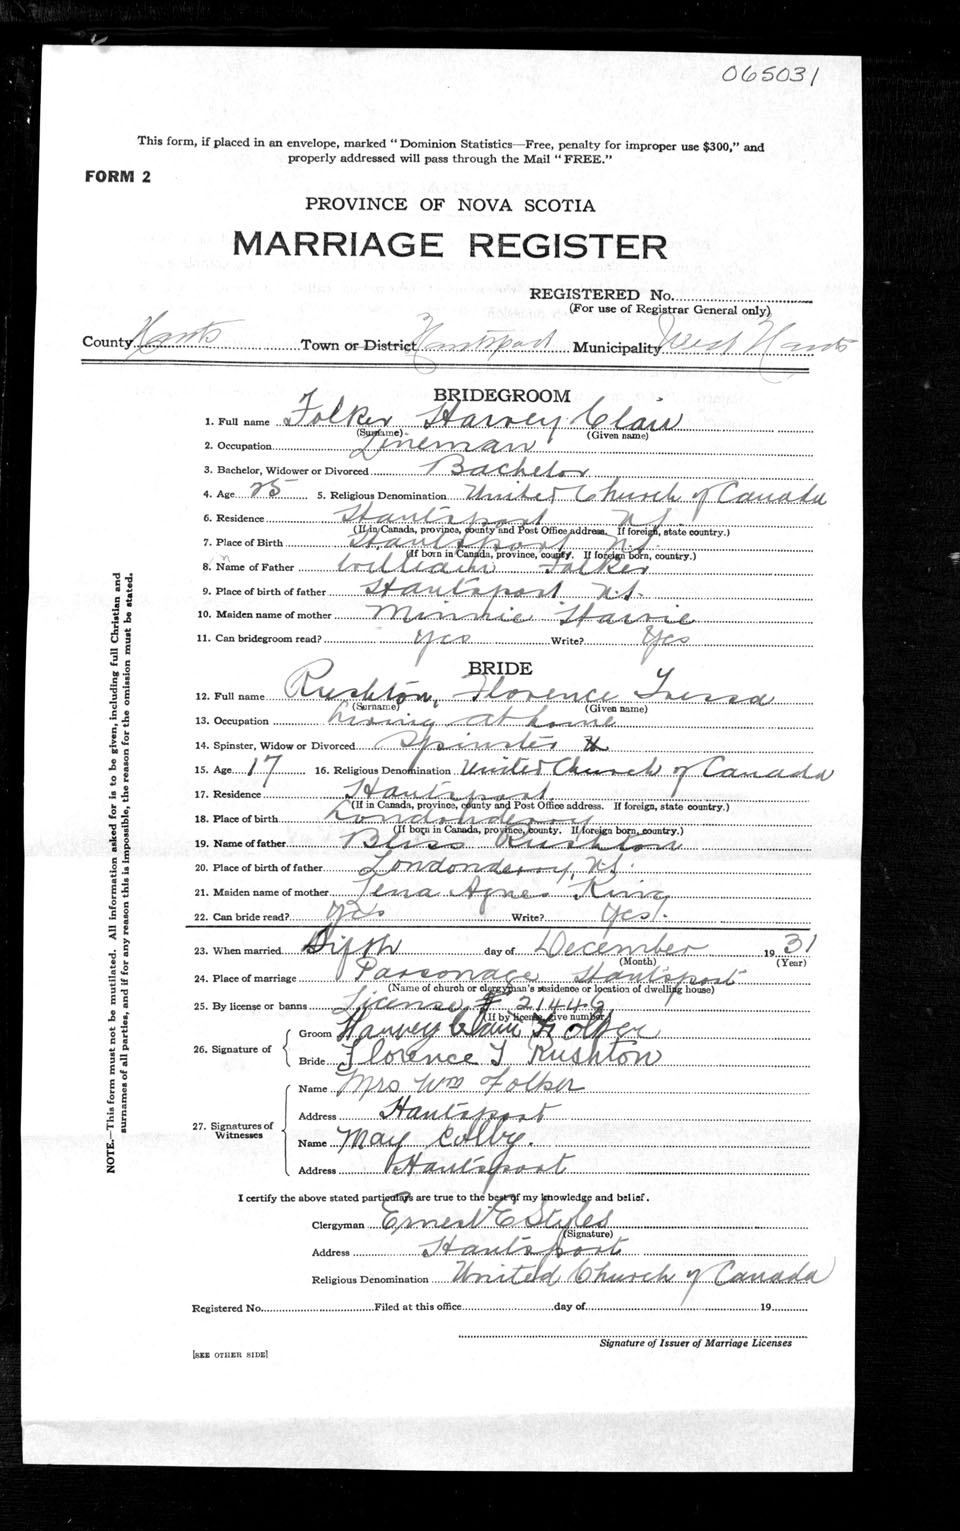 065031
This form, if placed in an envelope, marked "Dominion Statistics—Free, penalty for improper use $300," and
properly addressed will pass through the Mail "FREE."
FORM 2
PROVINCE OF NOVA SCOTIA
MARRIAGE REGISTER
REGISTERED No.
(For use of Registrar General only)
County Hants Town or District Hantsport Municipality West Hants
BRIDEGROOM
1. Full name Folker Harvey Clair
(Surname) (Given name)
2. Occupation Lineman
3. Bachelor, Widower or Divorced Bachelor
4. Age 25 5. Religious Denomination United Church of Canada
6. Residence Hantsport N.S.
(If in Canada, province, county and Post Office address. If foreign, state country.)
7. Place of Birth Hantsport N.S.
(If born in Canada, province, county. If foreign born, country.)
8. Name of Father William Folker
9. Place of birth of father Hantsport N.S.
10. Maiden name of mother Minnie
11. Can bridegroom read? Yes Write? Yes
BRIDE
12. Full name Rushton, Florence Tressa
(Surname) (Given name)
13. Occupation Living at home
14. Spinster, Widow or Divorced Spinster
15. Age 17 16. Religious Denomination United Church of Canada
17. Residence Hantsport
(If in Canada, province, county and Post Office address. If foreign, state country.)
18. Place of birth Londonderry
(If born in Canada, province, county. If foreign born, country.)
19. Name of father Bliss Rushton
20. Place of birth of father Londonderry, N.S.
21. Maiden name of mother Lena Agnes King
22. Can bride read? Yes Write? Yes.
23. When married Fifth day of December 1931
(Month) (Year)
24. Place of marriage Parsonage Hantsport
(Name of church or clergyman's residence or location of dwelling house)
25. By license or banns License # 21442
(If by license, give number)
26. Signature of
Groom Harvey Clair Folker
Bride Florence T Rushton
27. Signatures of Witnesses
Name Mrs Wm Folker
Address Hantsport
Name May Colby.
Address Hantsport
I certify the above stated particulars are true to the best of my knowledge and belief.
Clergyman Ernest E Styles
(Signature)
Address Hantsport
Religious Denomination United Church of Canada
Registered No. Filed at this office day of 19
Signature of Issuer of Marriage Licenses
[SEE OTHER SIDE]
NOTE.—This form must not be mutilated. All information asked for is to be given, including full Christian and
surnames of all parties, and if for any reason this is impossible, the reason for the omission must be stated.